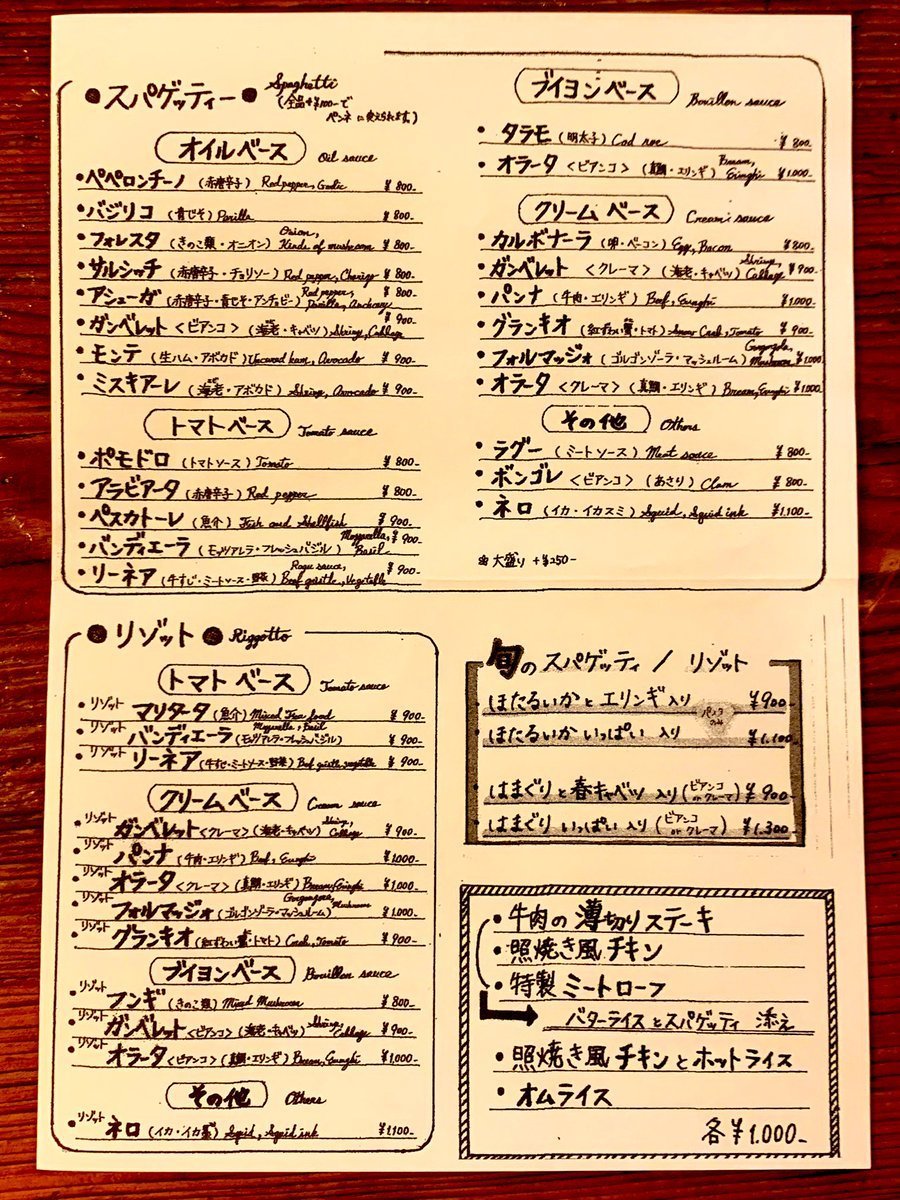 ●スパゲッティー● Spaghetti
(全品+¥100-で
ペンネに変えられます)
オイルベース Oil sauce
・ペペロンチーノ (赤唐辛子) Red pepper, Garlic ¥800-
・バジリコ (青じそ) Perilla ¥800-
・フォレスタ (きのこ類・オニオン) Onion, Kinds of mushroom ¥800-
・サルシッチ (赤唐辛子・チョリソー) Red pepper, Chorizo ¥800-
・アシューガ (赤唐辛子・青じそ・アンチョビー) Red pepper, Perilla, Anchovy ¥800-
・ガンベレット <ビアンコ> (海老・キャベツ) Shrimp, Cabbage ¥900-
・モンテ (生ハム・アボカド) Uncured ham, Avocado ¥900-
・ミスキアーレ (海老・アボカド) Shrimp, Avocado ¥900-
トマトベース Tomato sauce
・ポモドロ (トマトソース) Tomato ¥800-
・アラビアータ (赤唐辛子) Red pepper ¥800-
・ペスカトーレ (魚介) Fish and Shellfish ¥900-
・バンディエーラ (モッツアレラ・フレッシュバジル) Mozzarella, Basil ¥900-
・リーネア (牛すじ・ミートソース・野菜) Ragu sauce, Beef gristle, Vegetable ¥900-
ブイヨンベース Bouillon sauce
・タラモ (明太子) Cod roe ¥800-
・オラータ <ビアンコ> (真鯛・エリンギ) Bream, Eringhi ¥1.000-
クリームベース Cream sauce
・カルボナーラ (卵・ベーコン) Egg, Bacon ¥800-
・ガンベレット <クレーマ> (海老・キャベツ) Shrimp, Cabbage ¥900-
・パンナ (牛肉・エリンギ) Beef, Eringhi ¥1.000-
・グランキオ (紅ずわい蟹・トマト) Snow Crab, Tomato ¥900-
・フォルマッジォ (ゴルゴンゾーラ・マッシュルーム) Gorgonzola, Mushroom ¥1.000
・オラータ <クレーマ> (真鯛・エリンギ) Bream, Eringhi ¥1.000-
その他 Others
・ラグー (ミートソース) Meat sauce ¥800-
・ボンゴレ <ビアンコ> (あさり) Clam ¥800-
・ネロ (イカ・イカスミ) Squid, Squid ink ¥1.100-
大盛り +¥250-
●リゾット● Riggotto
トマトベース Tomato sauce
・リゾット マリタータ (魚介) Mixed Sea food ¥900-
・リゾット バンディエーラ (モッツアレラ・フレッシュバジル) Mozzarella, Basil ¥900-
・リゾット リーネア (牛すじ・ミートソース・野菜) Beef gristle, vegetable ¥900-
クリームベース Cream sauce
・リゾット ガンベレット <クレーマ> (海老・キャベツ) Shrimp, Cabbage ¥900-
・リゾット パンナ (牛肉・エリンギ) Beef, Eringhi ¥1.000-
・リゾット オラータ <クレーマ> (真鯛・エリンギ) Bream, Eringhi ¥1.000-
・リゾット フォルマッジォ (ゴルゴンゾーラ・マッシュルーム) Mushroom ¥1.000-
・リゾット グランキオ (紅ずわい蟹・トマト) Crab, Tomato ¥900-
ブイヨンベース Bouillon sauce
・リゾット フンギ (きのこ類) Mixed Mushroom ¥800-
・リゾット ガンベレット <ビアンコ> (海老・キャベツ) Shrimp, Cabbage ¥900-
・リゾット オラータ <ビアンコ> (真鯛・エリンギ) Bream, Eringhi ¥1.000-
その他 Others
・リゾット ネロ (イカ・イカ墨) Sqid, Squid ink ¥1.100-
旬のスパゲッティ / リゾット
ほたるいかとエリンギ入り ¥900-
ほたるいかいっぱい入り ¥1.100-
はまぐりと春キャベツ入り (ビアンコ or クレーマ) ¥900-
はまぐりいっぱい入り (ビアンコ or クレーマ) ¥1.300-
・牛肉の薄切りステーキ
・照焼き風チキン
・特製ミートローフ
バターライスとスパゲッティ添え
・照焼き風チキンとホットライス
・オムライス
各¥1.000-